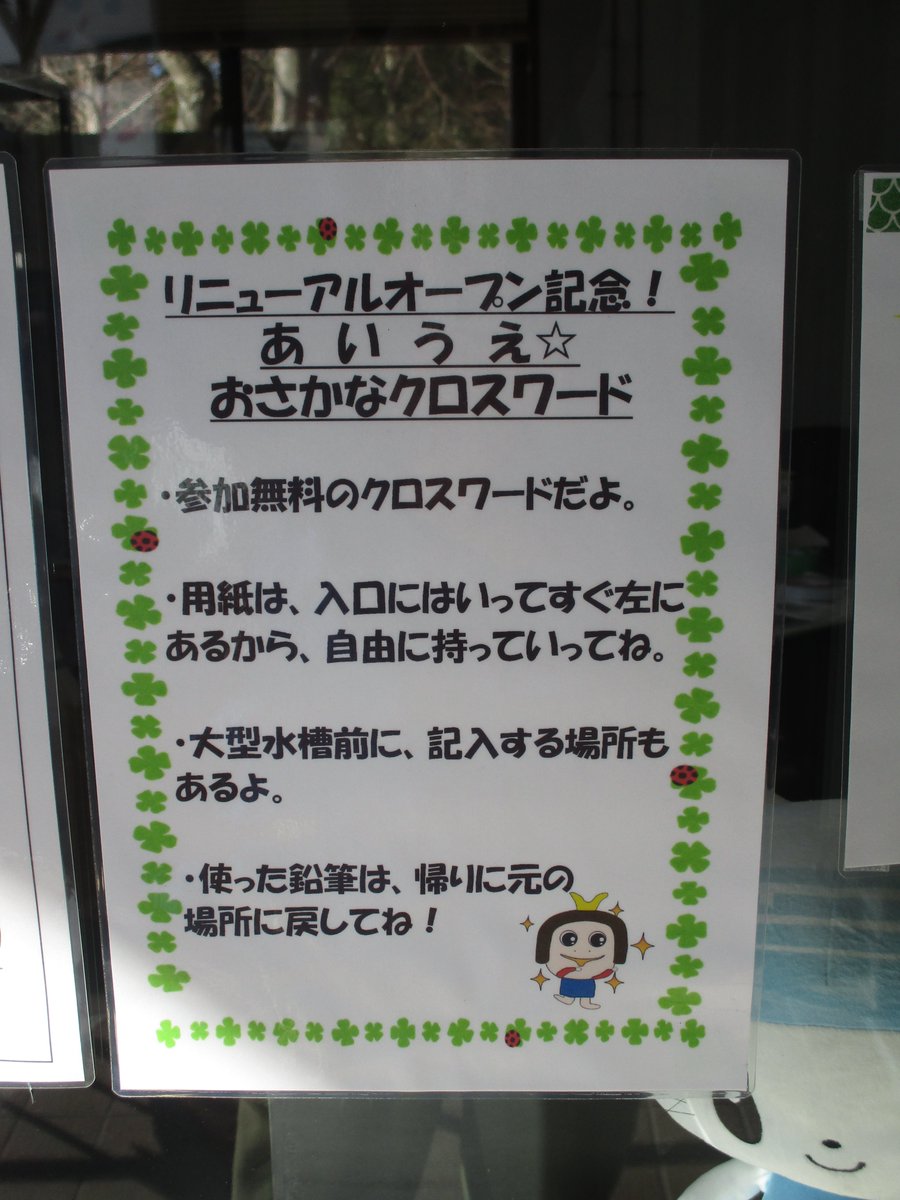 リニューアルオープン記念！
あいうえ☆
おさかなクロスワード
・参加無料のクロスワードだよ。
・用紙は、入口にはいってすぐ左に
あるから、自由に持っていってね。
・大型水槽前に、記入する場所も
あるよ。
・使った鉛筆は、帰りに元の
場所に戻してね！